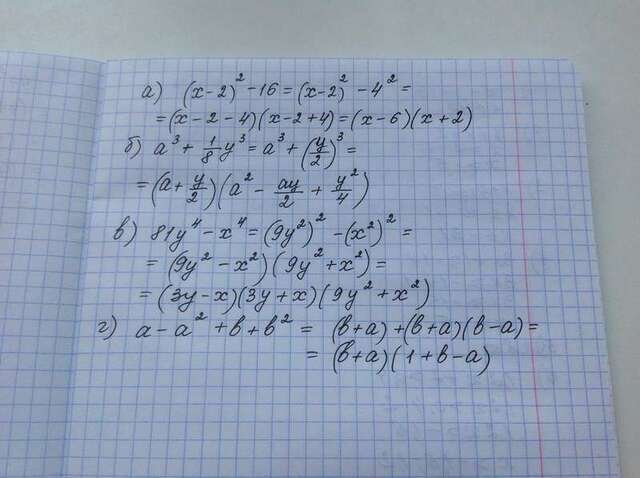 а) (x-2)² - 16 = (x-2)² - 4² =
= (x - 2 - 4)(x - 2 + 4) = (x - 6)(x + 2)
б) a³ + 1/8 y³ = a³ + (y/2)³ =
= (a + y/2)(a² - ay/2 + y²/4)
в) 81y⁴ - x⁴ = (9y²)² - (x²)² =
= (9y² - x²)(9y² + x²) =
= (3y - x)(3y + x)(9y² + x²)
г) a - a² + b + b² = (b + a) + (b + a)(b - a) =
= (b + a)(1 + b - a)